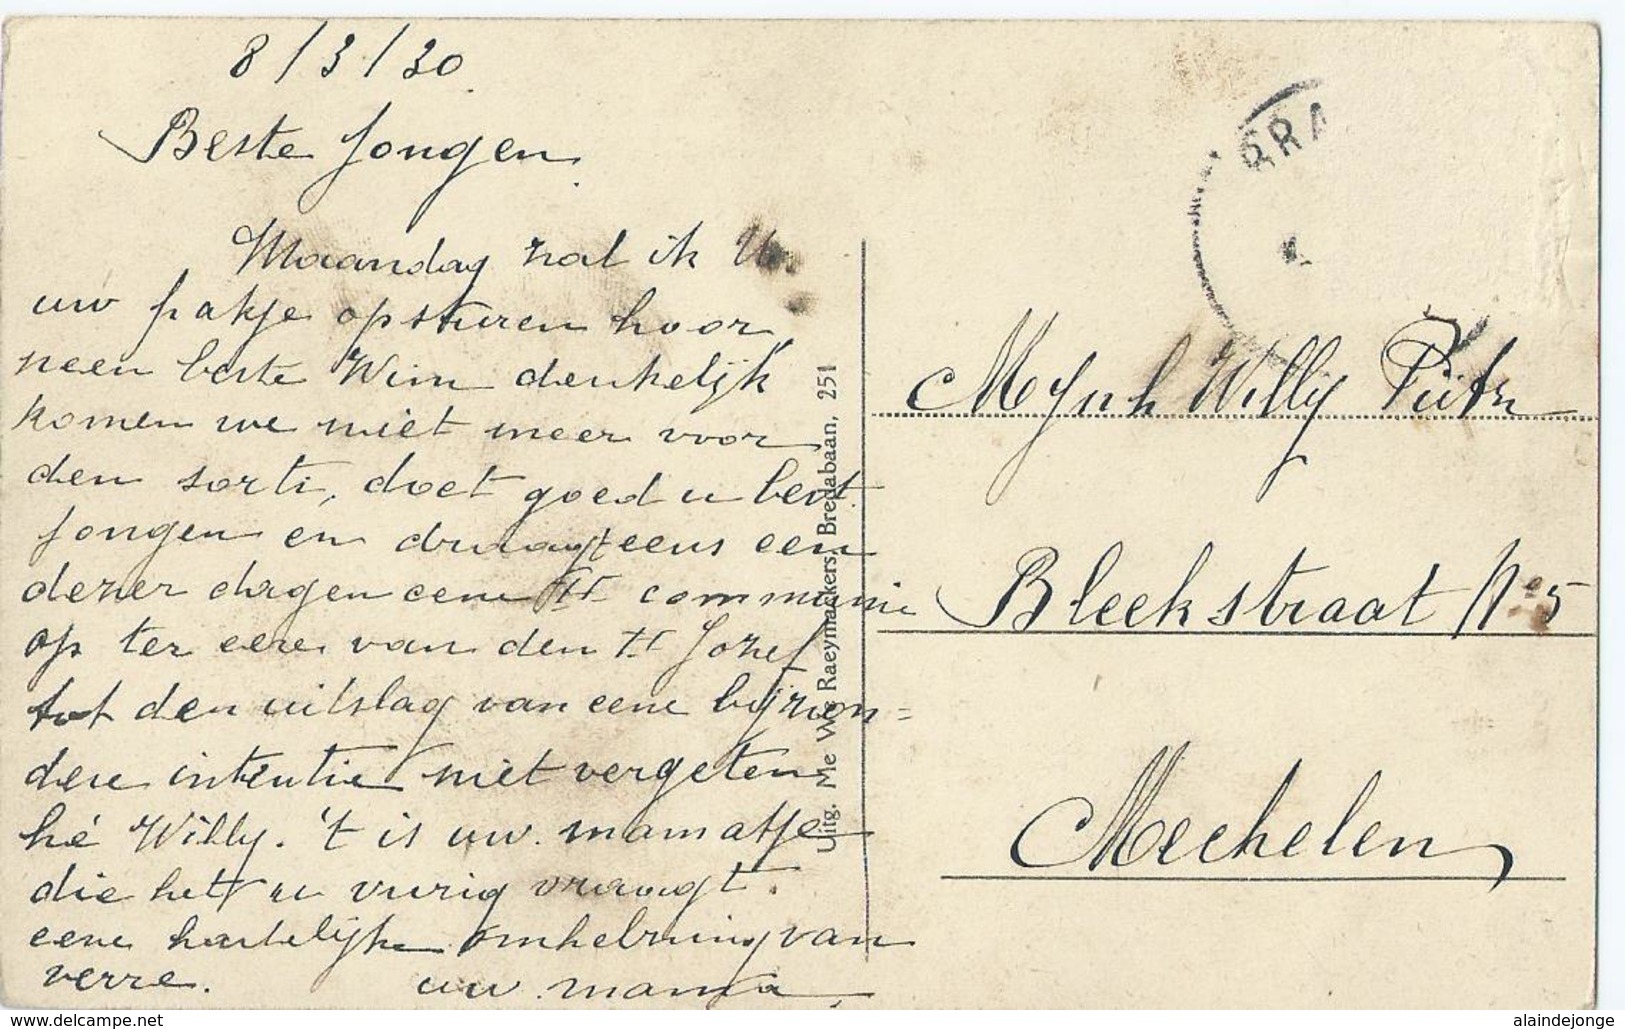 8/3/30
Beste Jongen
Maandag zal ik
uw pakje opsturen hoor,
neen beste Wim denkelijk
komen we niet meer voor
den sorti, doet goed u best
jongen en draagt eens een
dezer dagen eene H communie
op ter eere van den H Jozef
tot den uitslag van eene bijzon=
dere intentie niet vergeten
hé Willy. 't is uw mamatje
die het u vurig vraagt.
eene hartelijke omhelzing van
verre. uw mama
Uitg. Me We Raeymaekers, Bredabaan, 251
BRA
Mynh Willy
Bleekstraat No 5
Mechelen
www.delcampe.net
alaindejonge